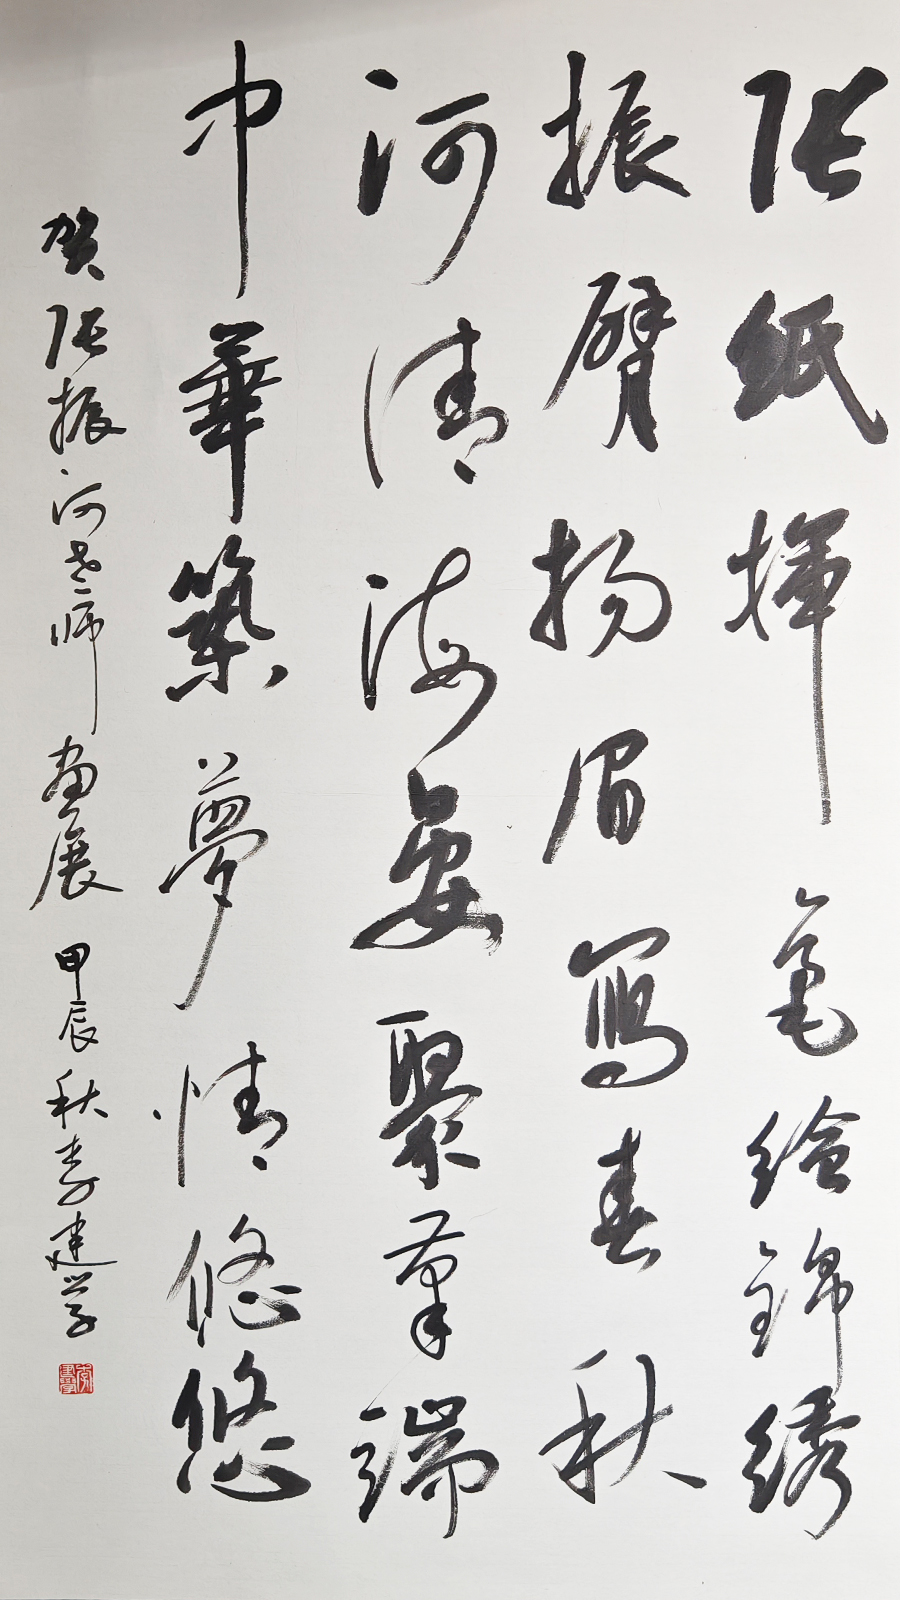 张纸揮毫绘錦绣
振臂扬眉寫春秋
河清海晏聚筆端
中華築夢情悠悠
贺张振河老师画展 甲辰秋李建学